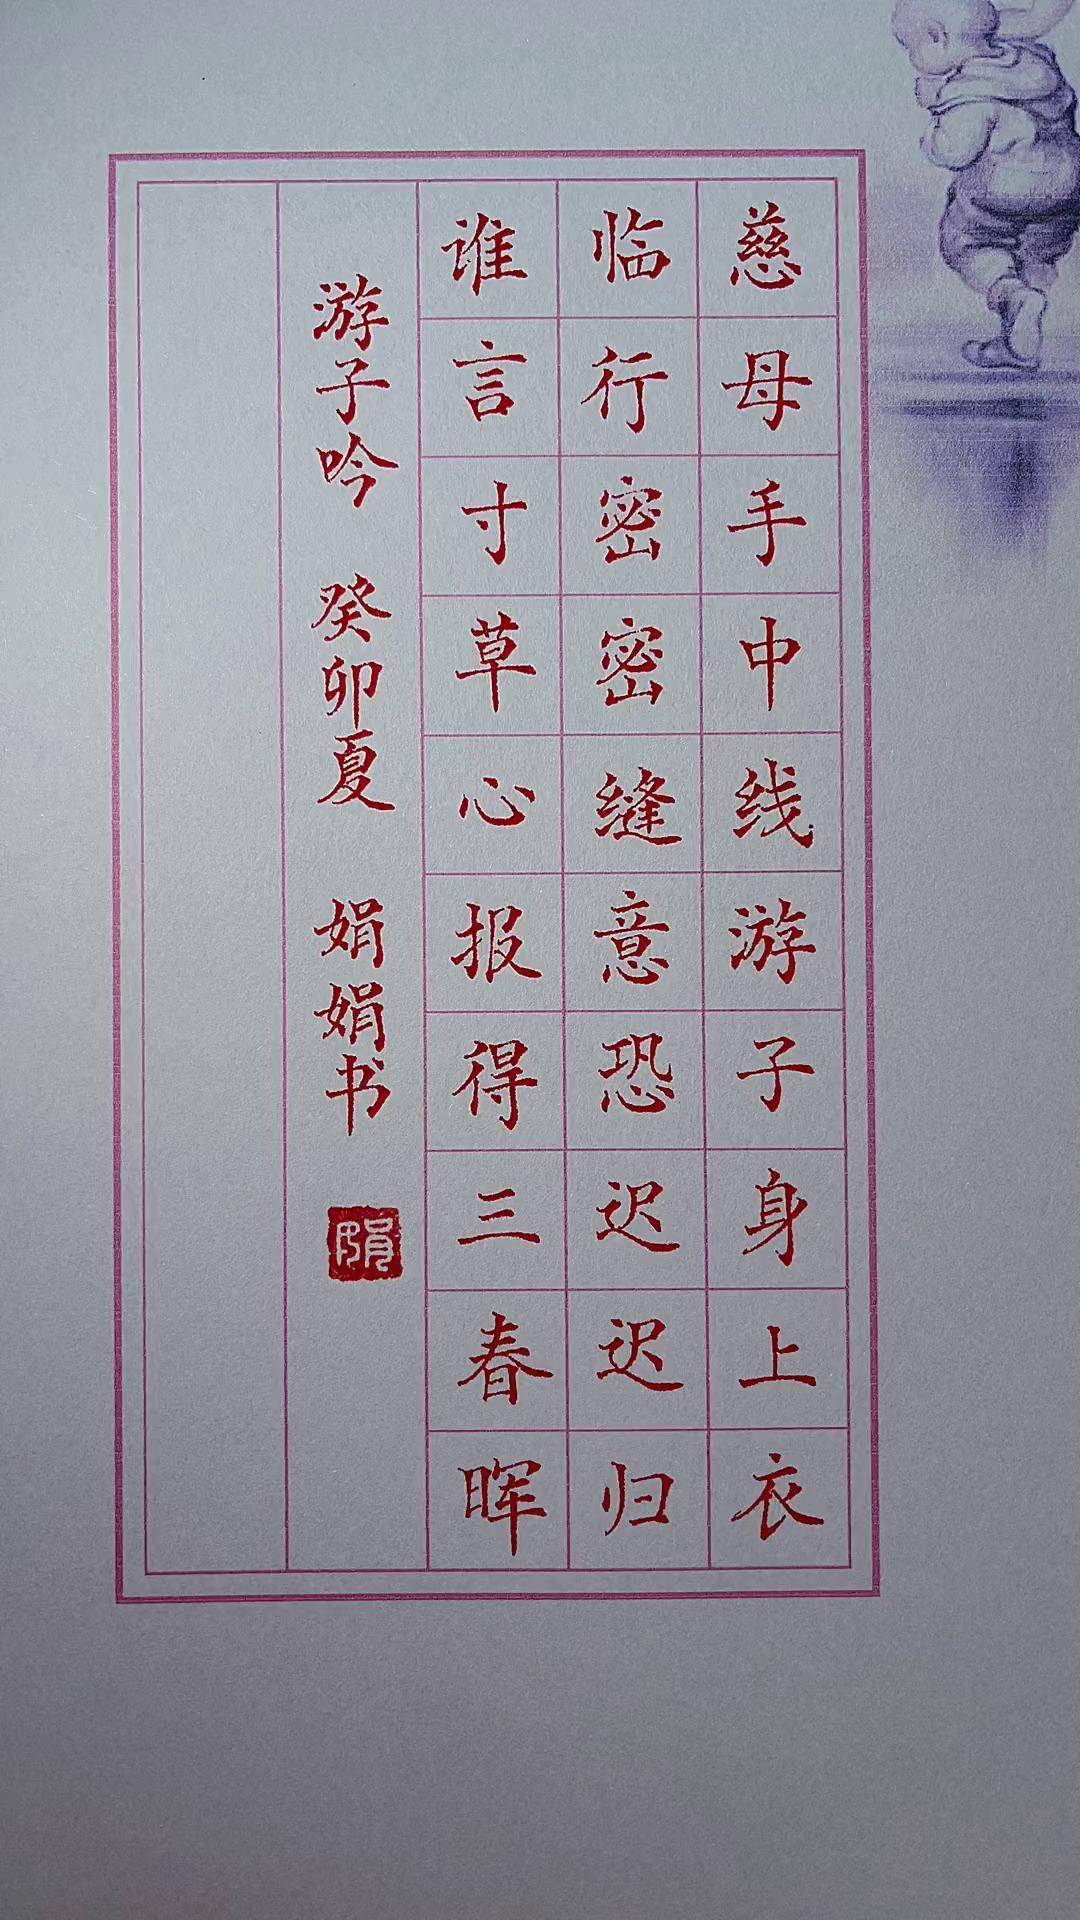 慈母手中线游子身上衣
临行密密缝意恐迟迟归
谁言寸草心报得三春晖
游子吟 癸卯夏 娟娟书